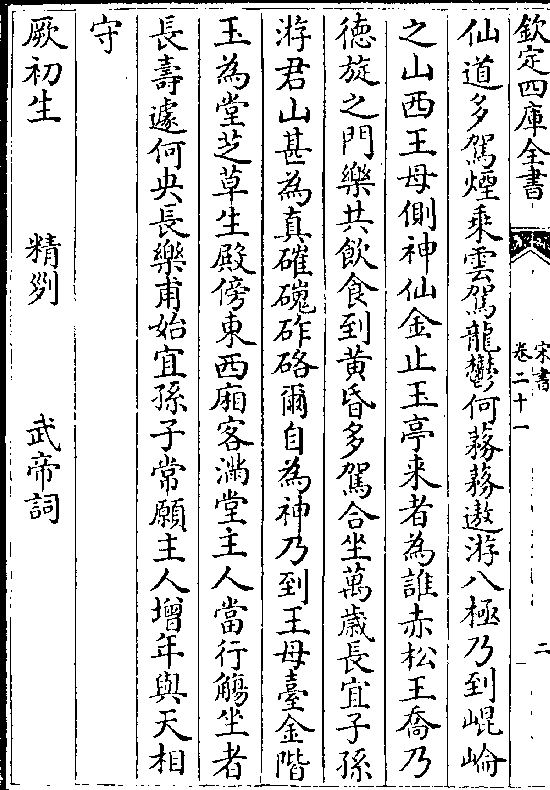 欽定四庫全書
宋書
卷二十一
二
仙道多駕煙乘雲駕龍鬱何蓩蓩遨游八極乃到崐崘
之山西王母側神仙金止玉亭来者為誰赤松王喬乃
徳旋之門樂共飲食到黄昏多駕合坐萬歲長宜子孫
游君山甚為真磪磈砟硌爾自為神乃到王母臺金階
玉為堂芝草生殿傍東西廂客滿堂主人當行觴坐者
長壽遽何央長樂甫始宜孫子常願主人增年與天相
守
厥初生 精列 武帝詞